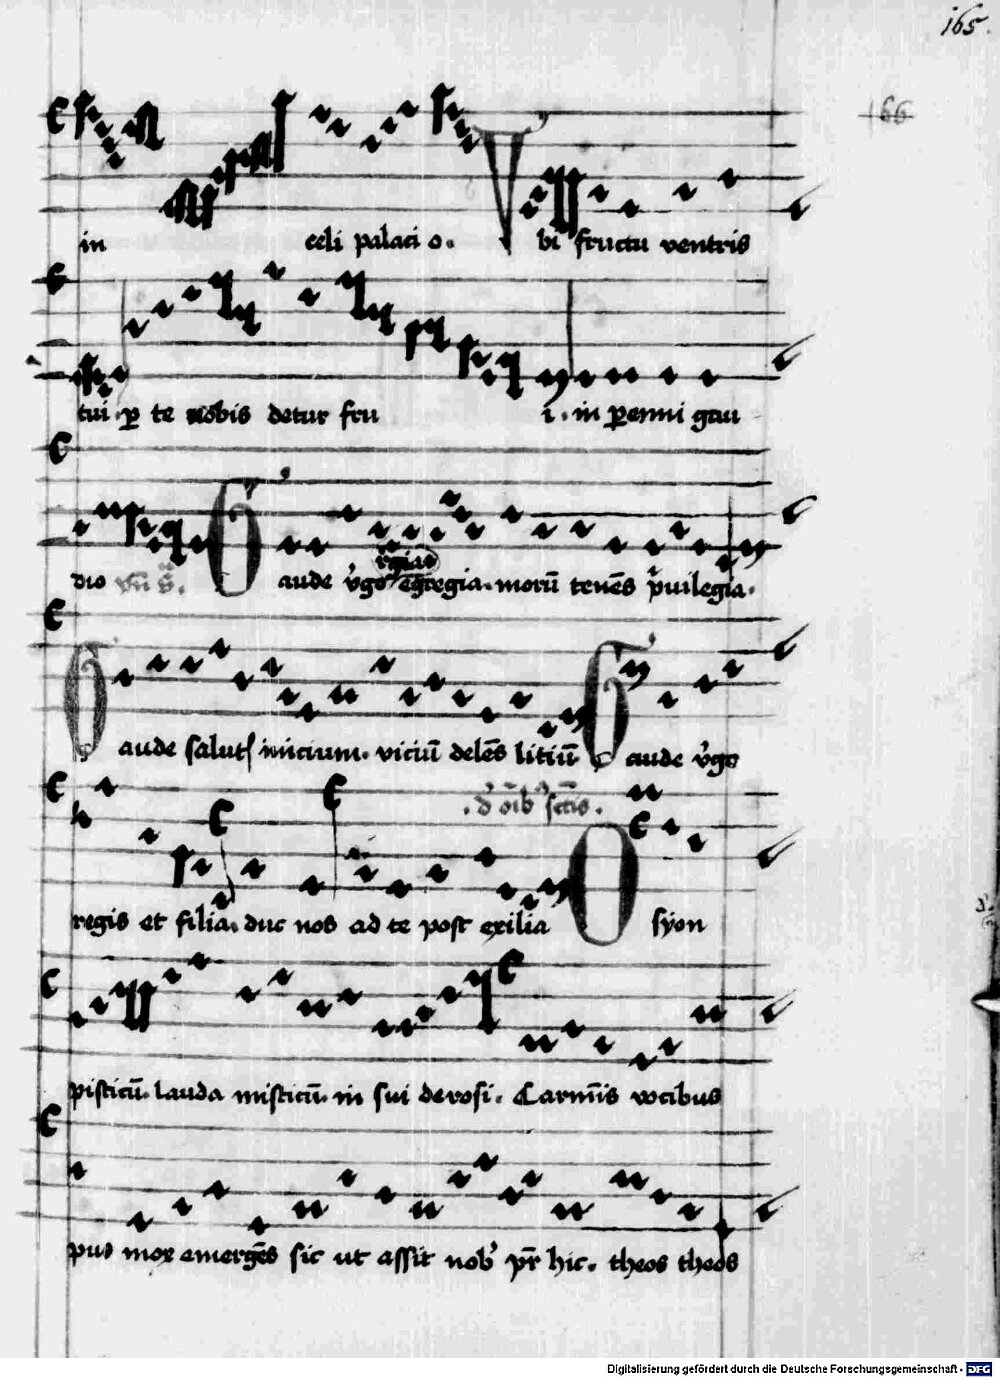 165.
166
in celi palaci o. Vbi fructu ventris
tui. ꝑ te nobis detur fru i. in ꝑenni gau
dio Gaude v̓go egregia. morū tenēs pͥuilegia.
rgia
Gaude salutꝭ inicium. viciū delēs litiū Gaude v̓go
.d̓ oībꝰ sctīs.
regis et filia. duc nos ad te post exilia O syon
pisticū. lauda misticū. in sui devosi. Carmīs vocibus
pus mox emergēs sic ut assit nob̓ pr̄ hic. theos theos
Digitalisierung gefördert durch die Deutsche Forschungsgemeinschaft - DFG